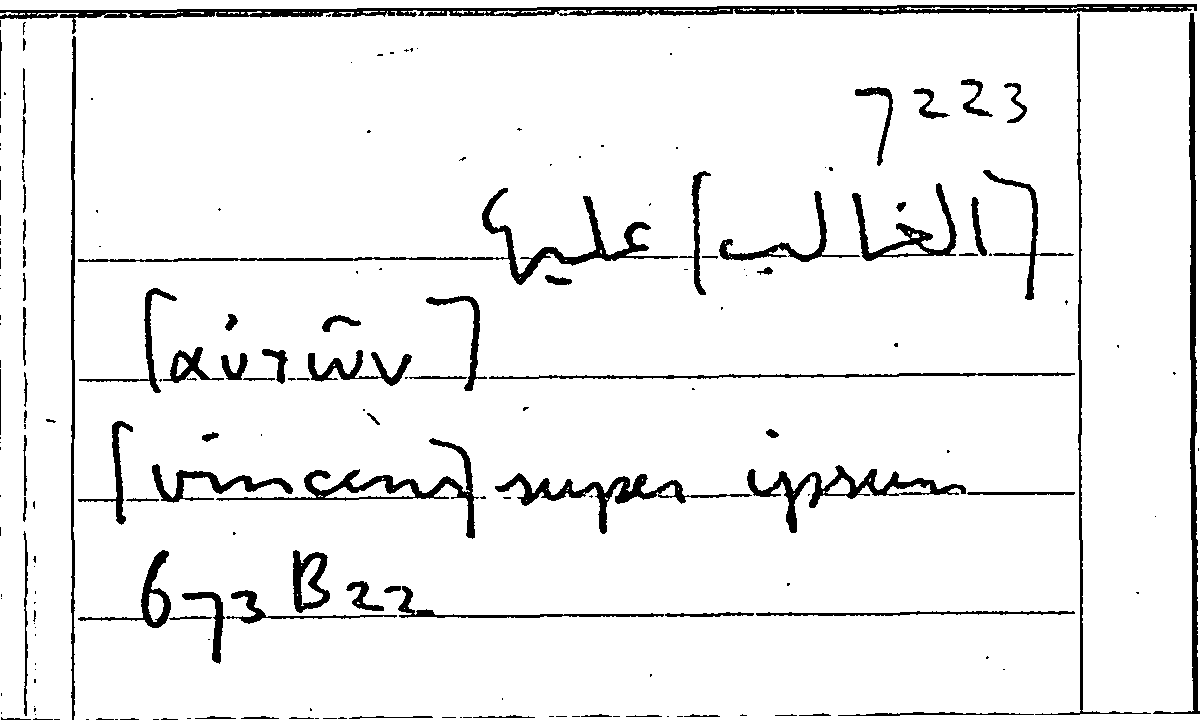 7223
[الغالب] عليها
[αὐτῶν]
[vincens] super ipsum
673 B22